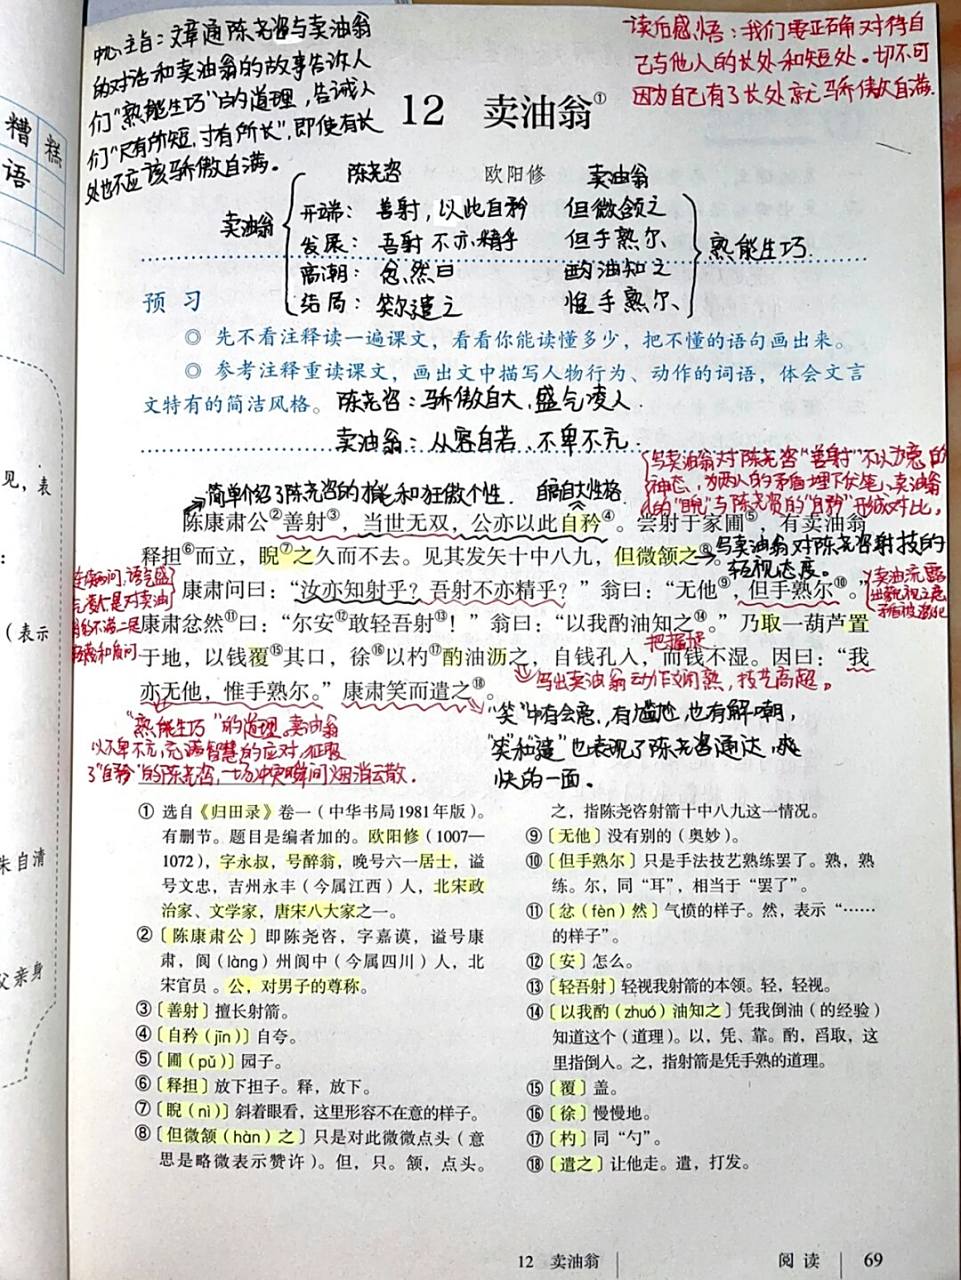 中心主旨：文章通陈尧咨与卖油翁
的对话和卖油翁的故事告诉人
们“熟能生巧”的道理，告诫人
们“尺有所短，寸有所长”，即使有长
处也不应该骄傲自满。
读后感悟：我们要正确对待自
己与他人的长处和短处。切不可
因为自己有了长处就骄傲自满.
糟糕
语
12 卖油翁①
陈尧咨 欧阳修 卖油翁
卖油翁
开端：善射，以此自矜 但微颔之
发展：吾射不亦精乎 但手熟尔
高潮：忿然曰 酌油知之
结局：笑而遣之 惟手熟尔
熟能生巧.
预习
◎ 先不看注释读一遍课文，看看你能读懂多少，把不懂的语句画出来。
◎ 参考注释重读课文，画出文中描写人物行为、动作的词语，体会文言
文特有的简洁风格。
陈尧咨：骄傲自大，盛气凌人
卖油翁：从容自若、不卑不亢.
见，表
（表示
朱自清
父亲身
写卖油翁对陈尧咨“善射”不以为意的
神态，为两人的矛盾埋下伏笔、卖油翁
的“睨”与陈尧咨的“自矜”形成对比，
简单介绍了陈尧咨的相貌和狂傲个性. 自高自大性格.
陈康肃公②善射③，当世无双，公亦以此自矜④。尝射于家圃⑤，有卖油翁
释担⑥而立，睨⑦之久而不去。见其发矢十中八九，但微颔之⑧。
写卖油翁对陈尧咨射技的
轻视态度。
康肃问曰：“汝亦知射乎？吾射不亦精乎？”翁曰：“无他⑨，但手熟尔⑩。”
康肃忿然⑪曰：“尔安⑫敢轻吾射⑬！”翁曰：“以我酌油知之⑭。”乃取一葫芦置
把握地
于地，以钱覆⑮其口，徐⑯以杓⑰酌油沥之，自钱孔入，而钱不湿。因曰：“我
写出卖油翁动作娴熟，技艺高超。
亦无他，惟手熟尔。”康肃笑而遣之⑱。
“熟能生巧”的道理。卖油翁
以不卑不亢，充满智慧的应对，征服
了“自矜”的陈尧咨，一场冲突瞬间烟消云散.
“笑”中有会意，有尴尬，也有解嘲，
“笑”和“遣”也表现了陈尧咨通达，爽
快的一面。
① 选自《归田录》卷一（中华书局1981年版）。
有删节。题目是编者加的。欧阳修（1007—
1072），字永叔，号醉翁，晚号六一居士，谥
号文忠，吉州永丰（今属江西）人，北宋政
治家、文学家，唐宋八大家之一。
②〔陈康肃公〕即陈尧咨，字嘉谟，谥号康
肃，阆（làng）州阆中（今属四川）人，北
宋官员。公，对男子的尊称。
③〔善射〕擅长射箭。
④〔自矜（jīn）〕自夸。
⑤〔圃（pǔ）〕园子。
⑥〔释担〕放下担子。释，放下。
⑦〔睨（nì）〕斜着眼看，这里形容不在意的样子。
⑧〔但微颔（hàn）之〕只是对此微微点头（意
思是略微表示赞许）。但，只。颔，点头。
之，指陈尧咨射箭十中八九这一情况。
⑨〔无他〕没有别的（奥妙）。
⑩〔但手熟尔〕只是手法技艺熟练罢了。熟，熟
练。尔，同“耳”，相当于“罢了”。
⑪〔忿（fèn）然〕气愤的样子。然，表示“……
的样子”。
⑫〔安〕怎么。
⑬〔轻吾射〕轻视我射箭的本领。轻，轻视。
⑭〔以我酌（zhuó）油知之〕凭我倒油（的经验）
知道这个（道理）。以，凭、靠。酌，舀取，这
里指倒人。之，指射箭是凭手熟的道理。
⑮〔覆〕盖。
⑯〔徐〕慢慢地。
⑰〔杓〕同“勺”。
⑱〔遣之〕让他走。遣，打发。
12 卖油翁
阅读
69